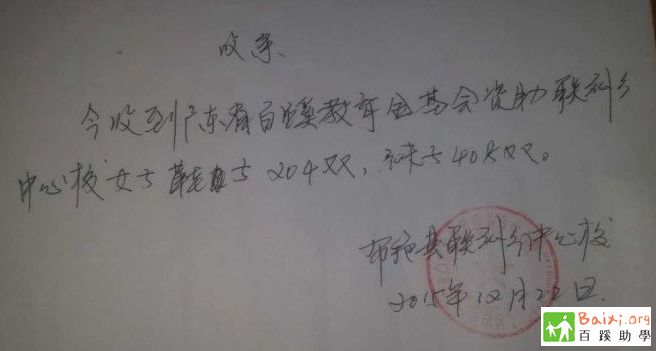 收条
今收到广东省百蹊教育基金会资助联补乡
中心校女士鞋204双,袜408双。
布拖县联补乡中心校
2015年12月22日.
Baixi.org
百蹊助學